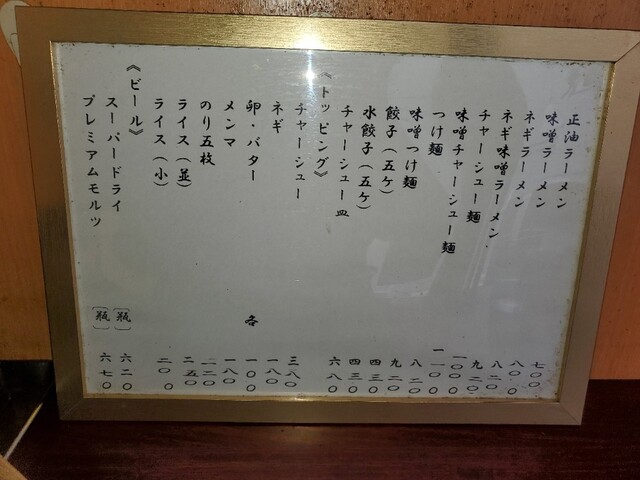 正油ラーメン 七〇〇
味噌ラーメン 八〇〇
ネギラーメン 八二〇
ネギ味噌ラーメン 九二〇
チャーシュー麺 一〇〇〇
味噌チャーシュー麺 一一〇〇
つけ麺 八二〇
味噌つけ麺 九二〇
餃子(五ケ) 四三〇
水餃子(五ケ) 四三〇
チャーシュー皿 六八〇
《トッピング》
チャーシュー 三八〇
ネギ 一八〇
卵・バター 各 一〇〇
メンマ 一八〇
のり五枚 一二〇
ライス(並) 二五〇
ライス(小) 二〇〇
《ビール》
スーパードライ [瓶] 六二〇
プレミアムモルツ [瓶] 六七〇